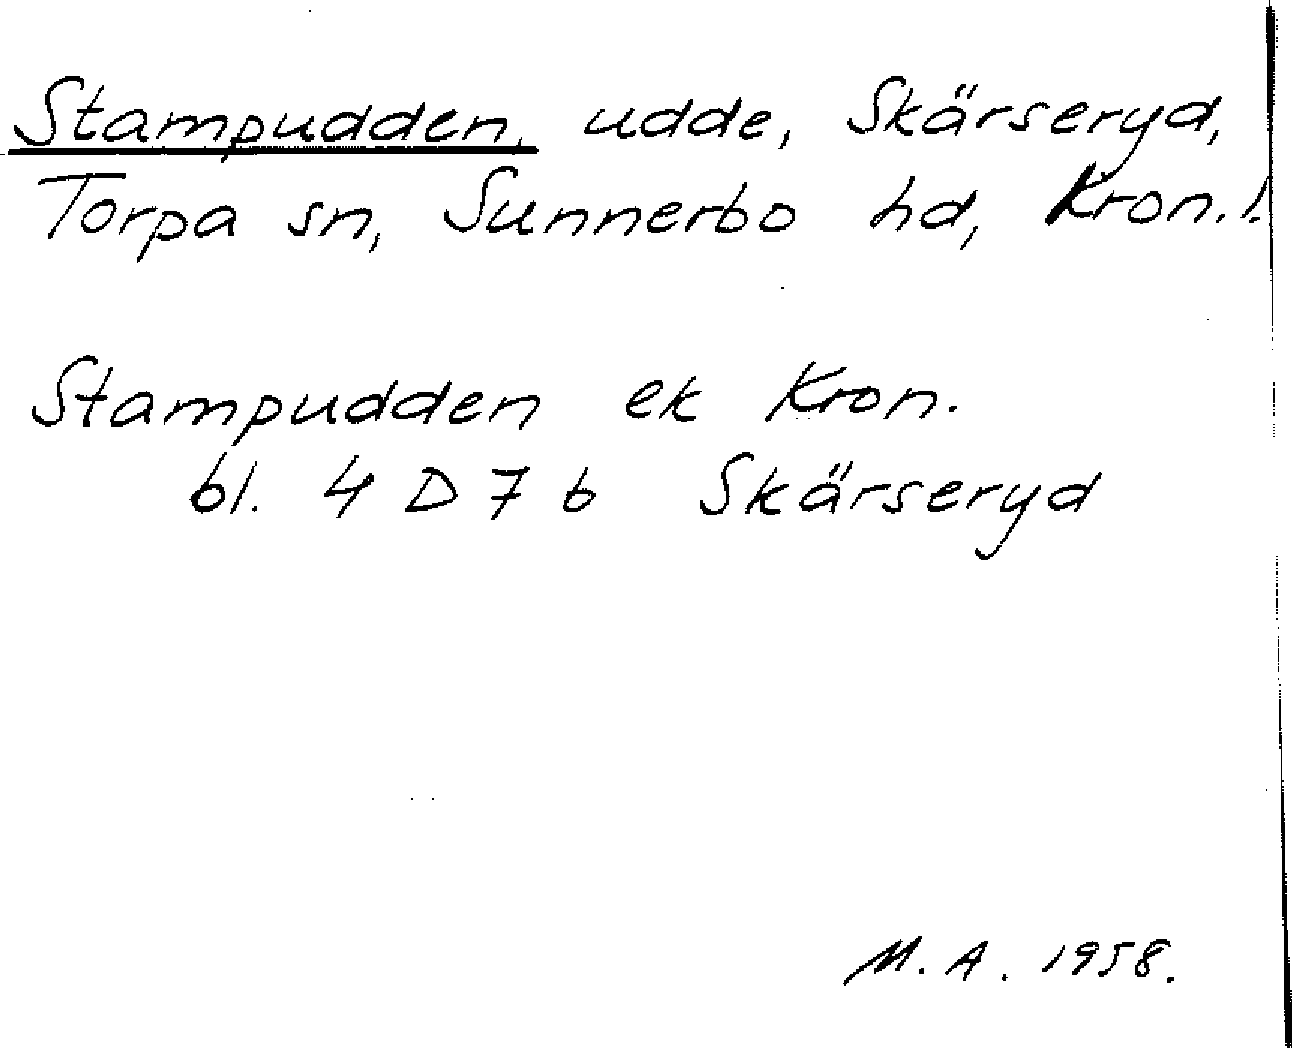 Stampudden, udde, Skärseryd,
Torpa sn, Sunnerbo hd, Kron. l.
Stampudden ek Kron.
bl. 4 D 7 b Skärseryd
M. A. 1958.